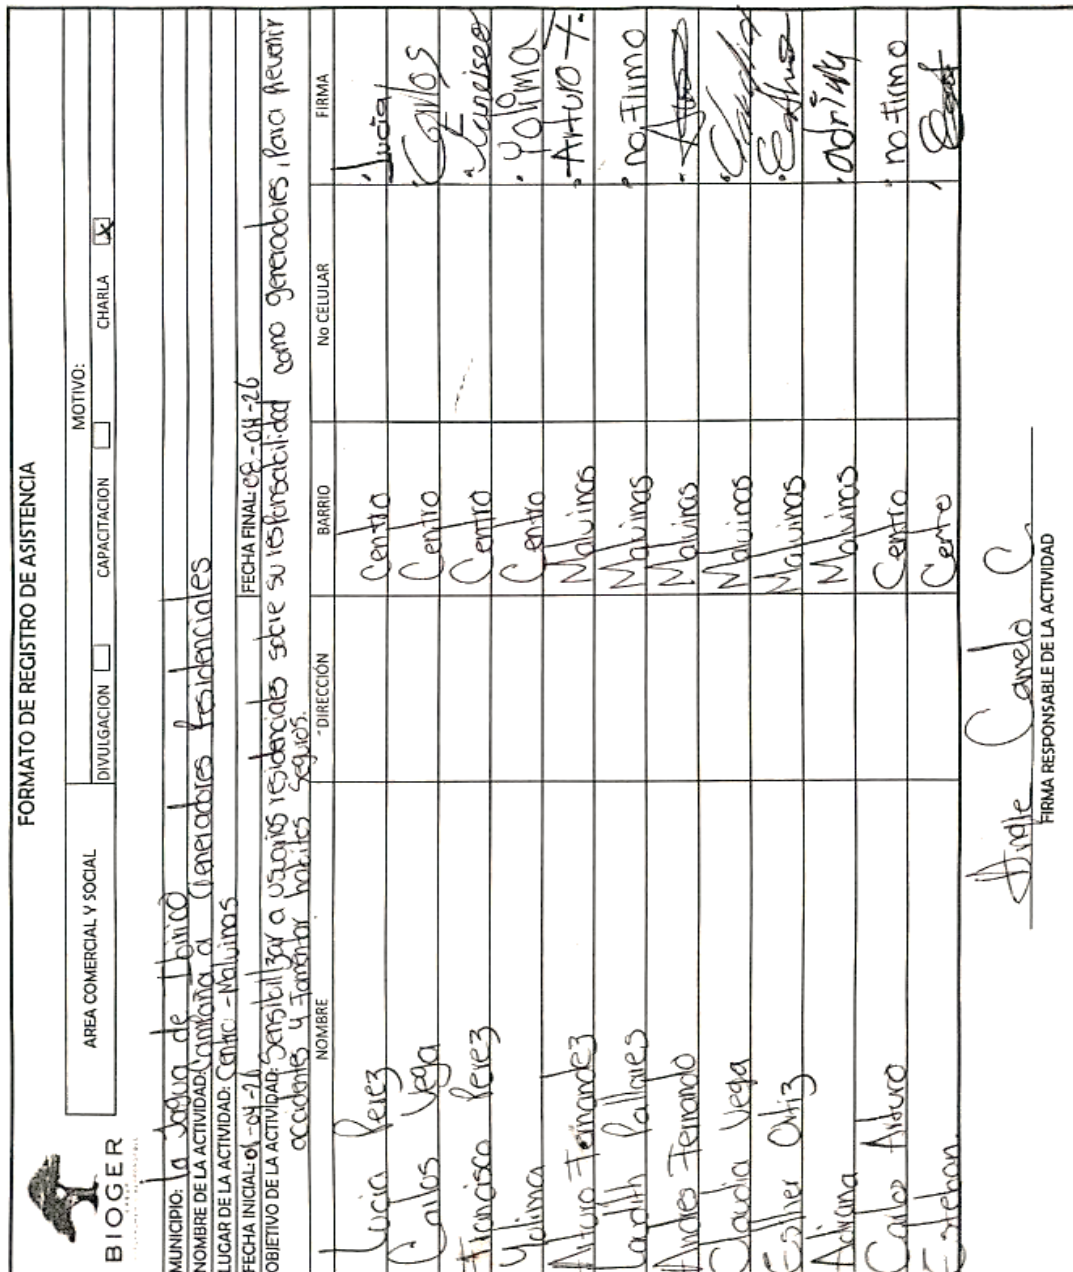 FORMATO DE REGISTRO DE ASISTENCIA
BIOGER
AREA COMERCIAL Y SOCIAL
MOTIVO:
DIVULGACION CAPACITACION CHARLA X
MUNICIPIO: La Jagua de Ibirico
NOMBRE DE LA ACTIVIDAD: Campaña a Generadores Residenciales
LUGAR DE LA ACTIVIDAD: Centro - Malvinas
FECHA INICIAL: 01-04-26 FECHA FINAL: 08-04-26
OBJETIVO DE LA ACTIVIDAD: Sensibilizar a usuarios residenciales sobre su responsabilidad como generadores, Para prevenir
accidentes y Fomentar habitos seguros.
NOMBRE DIRECCIÓN BARRIO No CELULAR FIRMA
Lucia Perez Centro Lucia
Carlos Vega Centro Carlos
Francisco Perez Centro Francisco
Yolima Centro Yolima
Arturo Fernandez Malvinas Arturo F.
Laudith Pallares Malvinas no Firmo
Andres Fernando Malvinas
Claudia Vega Malvinas Claudia
Esther Ortiz Malvinas
Adriana Malvinas
Carlos Arturo Centro no Firmo
Esteban. Cento
Angie Canelo C
FIRMA RESPONSABLE DE LA ACTIVIDAD